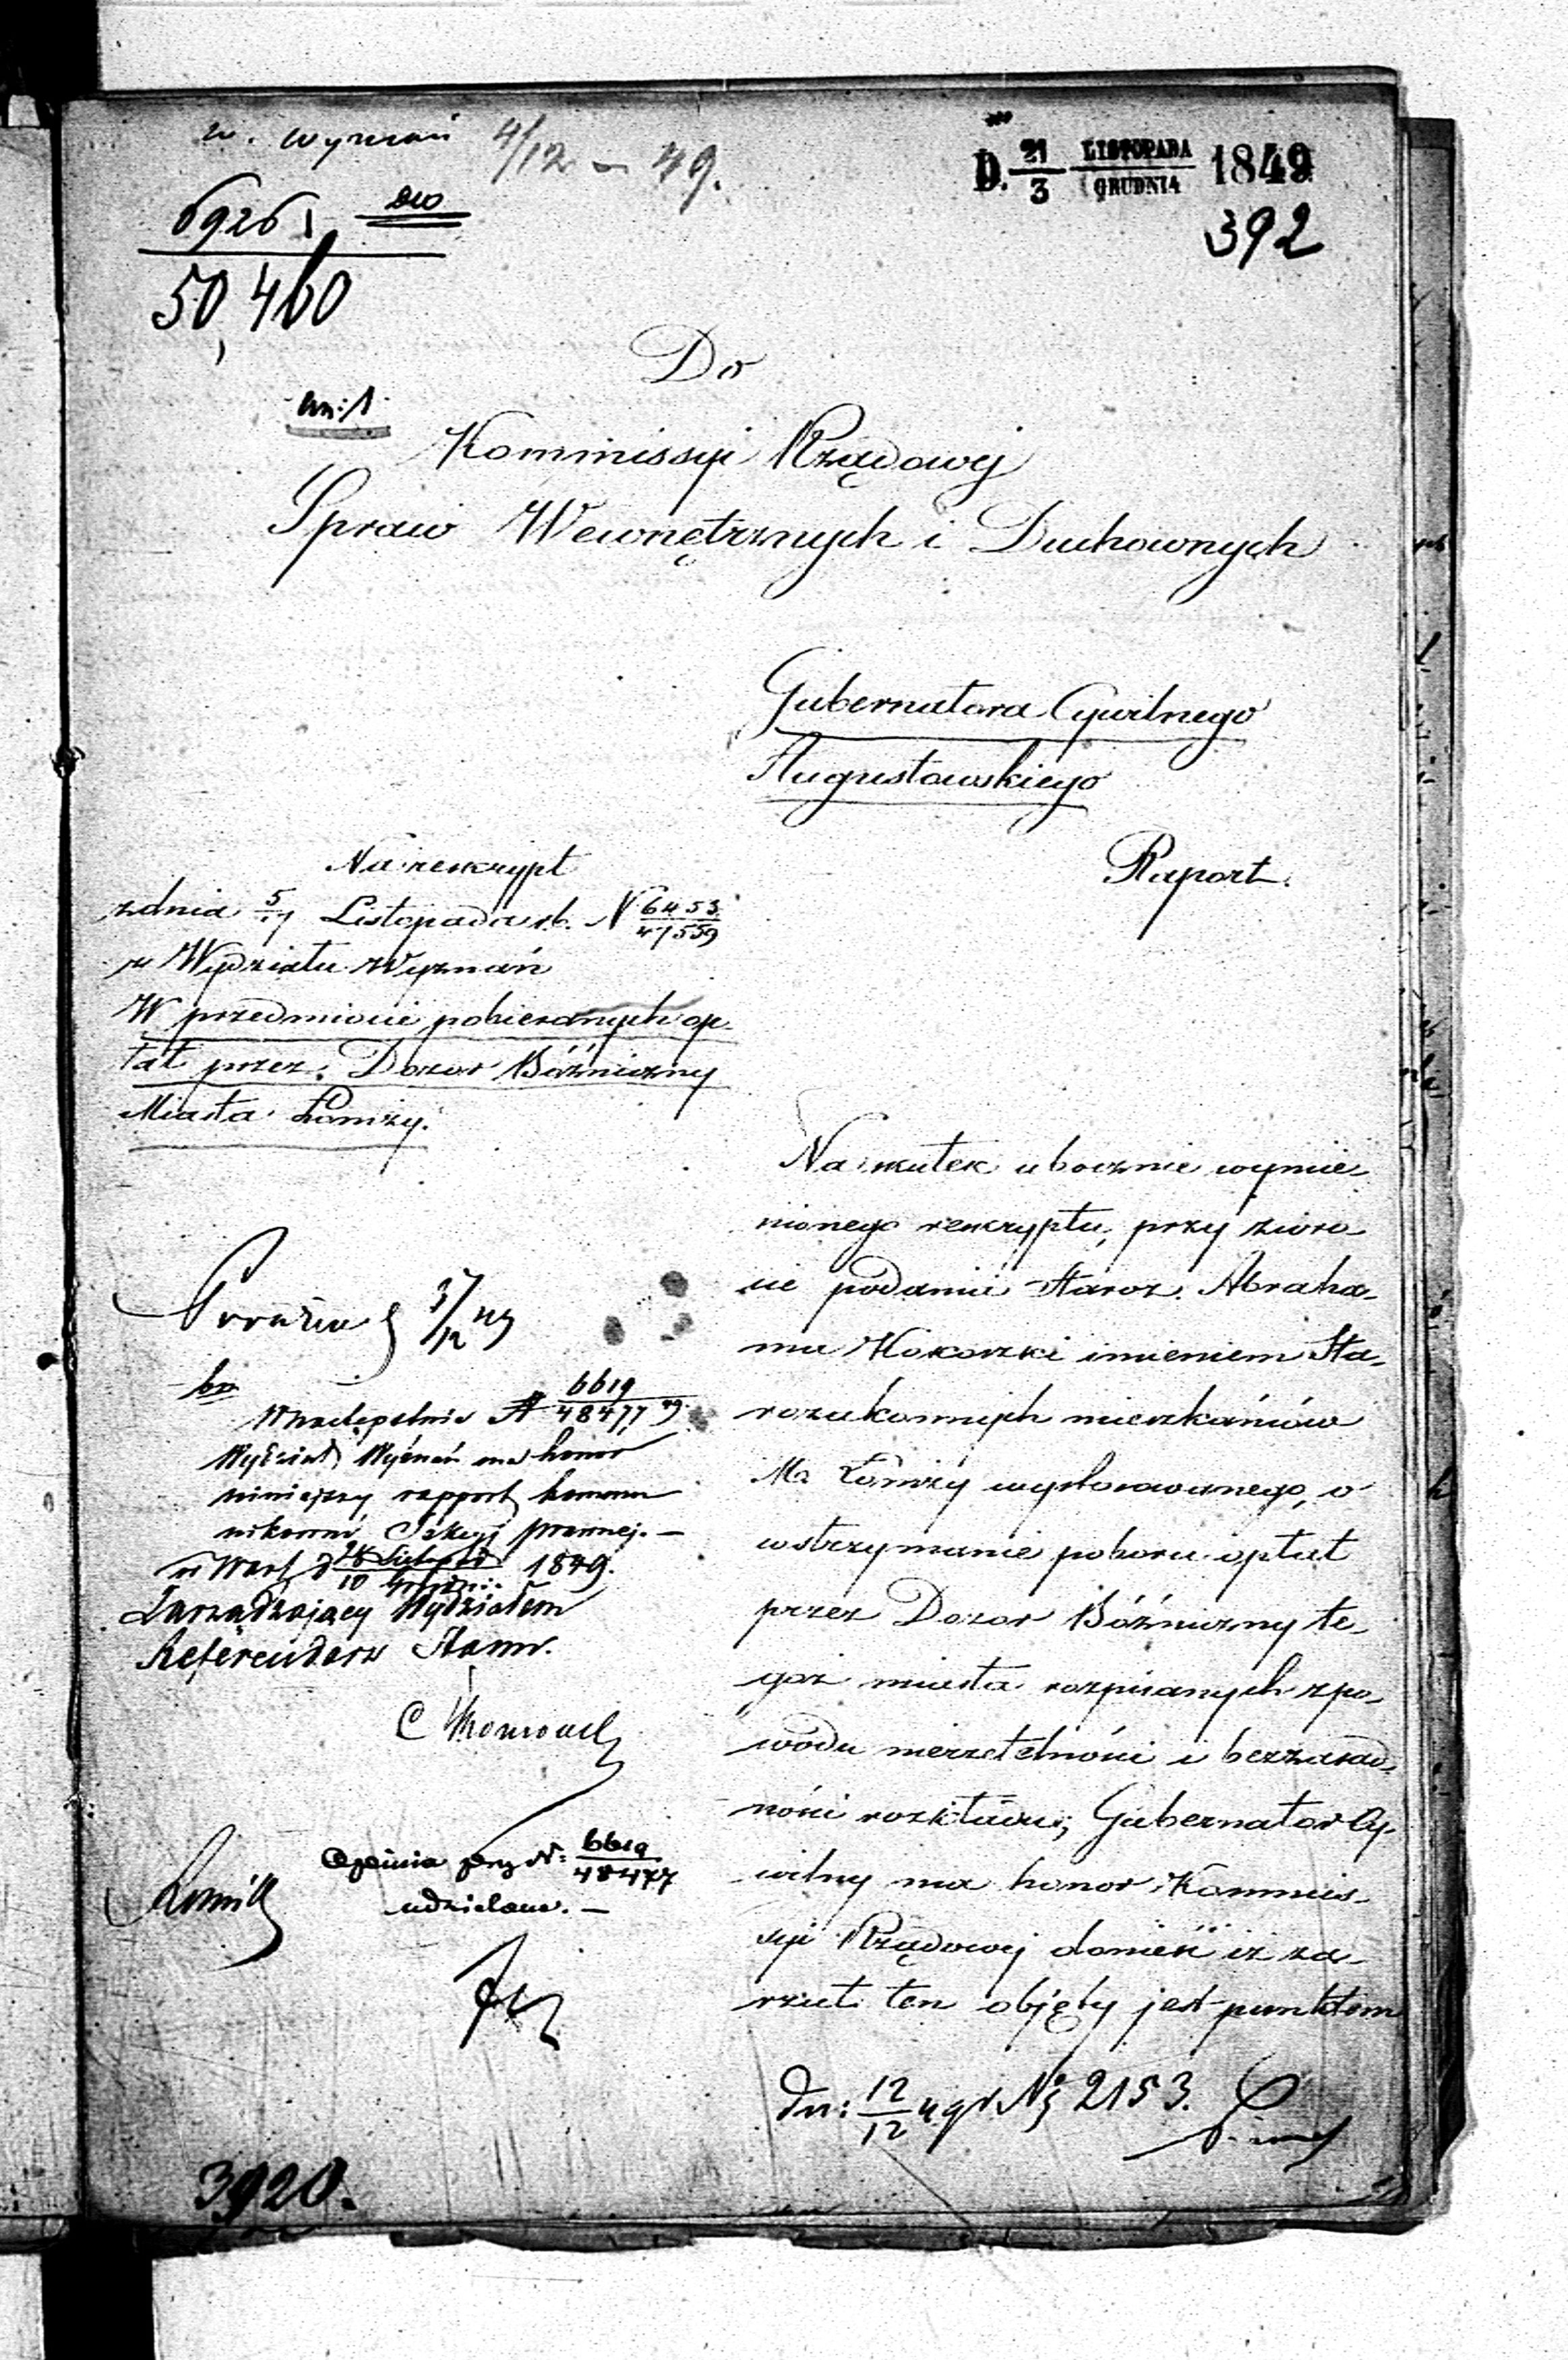 w. Wyznań 4/12 – 49.
D. 21/3 LISTOPADA/GRUDNIA 1849
392
6926
50,460
Do
Kommissyi Rządowej
Spraw Wewnętrznych i Duchownych
Gubernatora Cywilnego
Augustowskiego
Raport.
Na reskrypt
z dnia 5/17 Listopada r.b. N 6453/47559
z Wydziału Wyznań
W przedmiocie pobieranych op-
łat przez Dozor Bóżniczny
Miasta Łomży.
Na skutek ubocznie wymie-
nionego reskryptu, przy zwro-
cie podania Staroz. Abraha-
ma Kokoszki imieniem Sta-
rozakonnych mieszkańców
Mta Łomży wystosowanego, o
wstrzymanie poboru opłat
przez Dozor Bóżniczny te-
goż miasta rozpisanych z po-
wodu nierzetelności i bezzasad-
ności rozkładu; Gubernator Cy-
wilny ma honor Kommis-
syi Rządowej donieść iż za-
rzut ten objęty jest punktem
3/12 49
W następstwie N 6619/48477
Wydział Wyznań ma honor
niniejszy rapport kommu
nikować Sekcyi prawnej. –
w Warsz. d 28 Listopad/10 Grudnia 1849.
Zarządzający Wydziałem
Referendarz Stanu.
Opinia przy N: 6619/48477
udzielona. –
dn: 12/12 49 r N 2153.
3920.